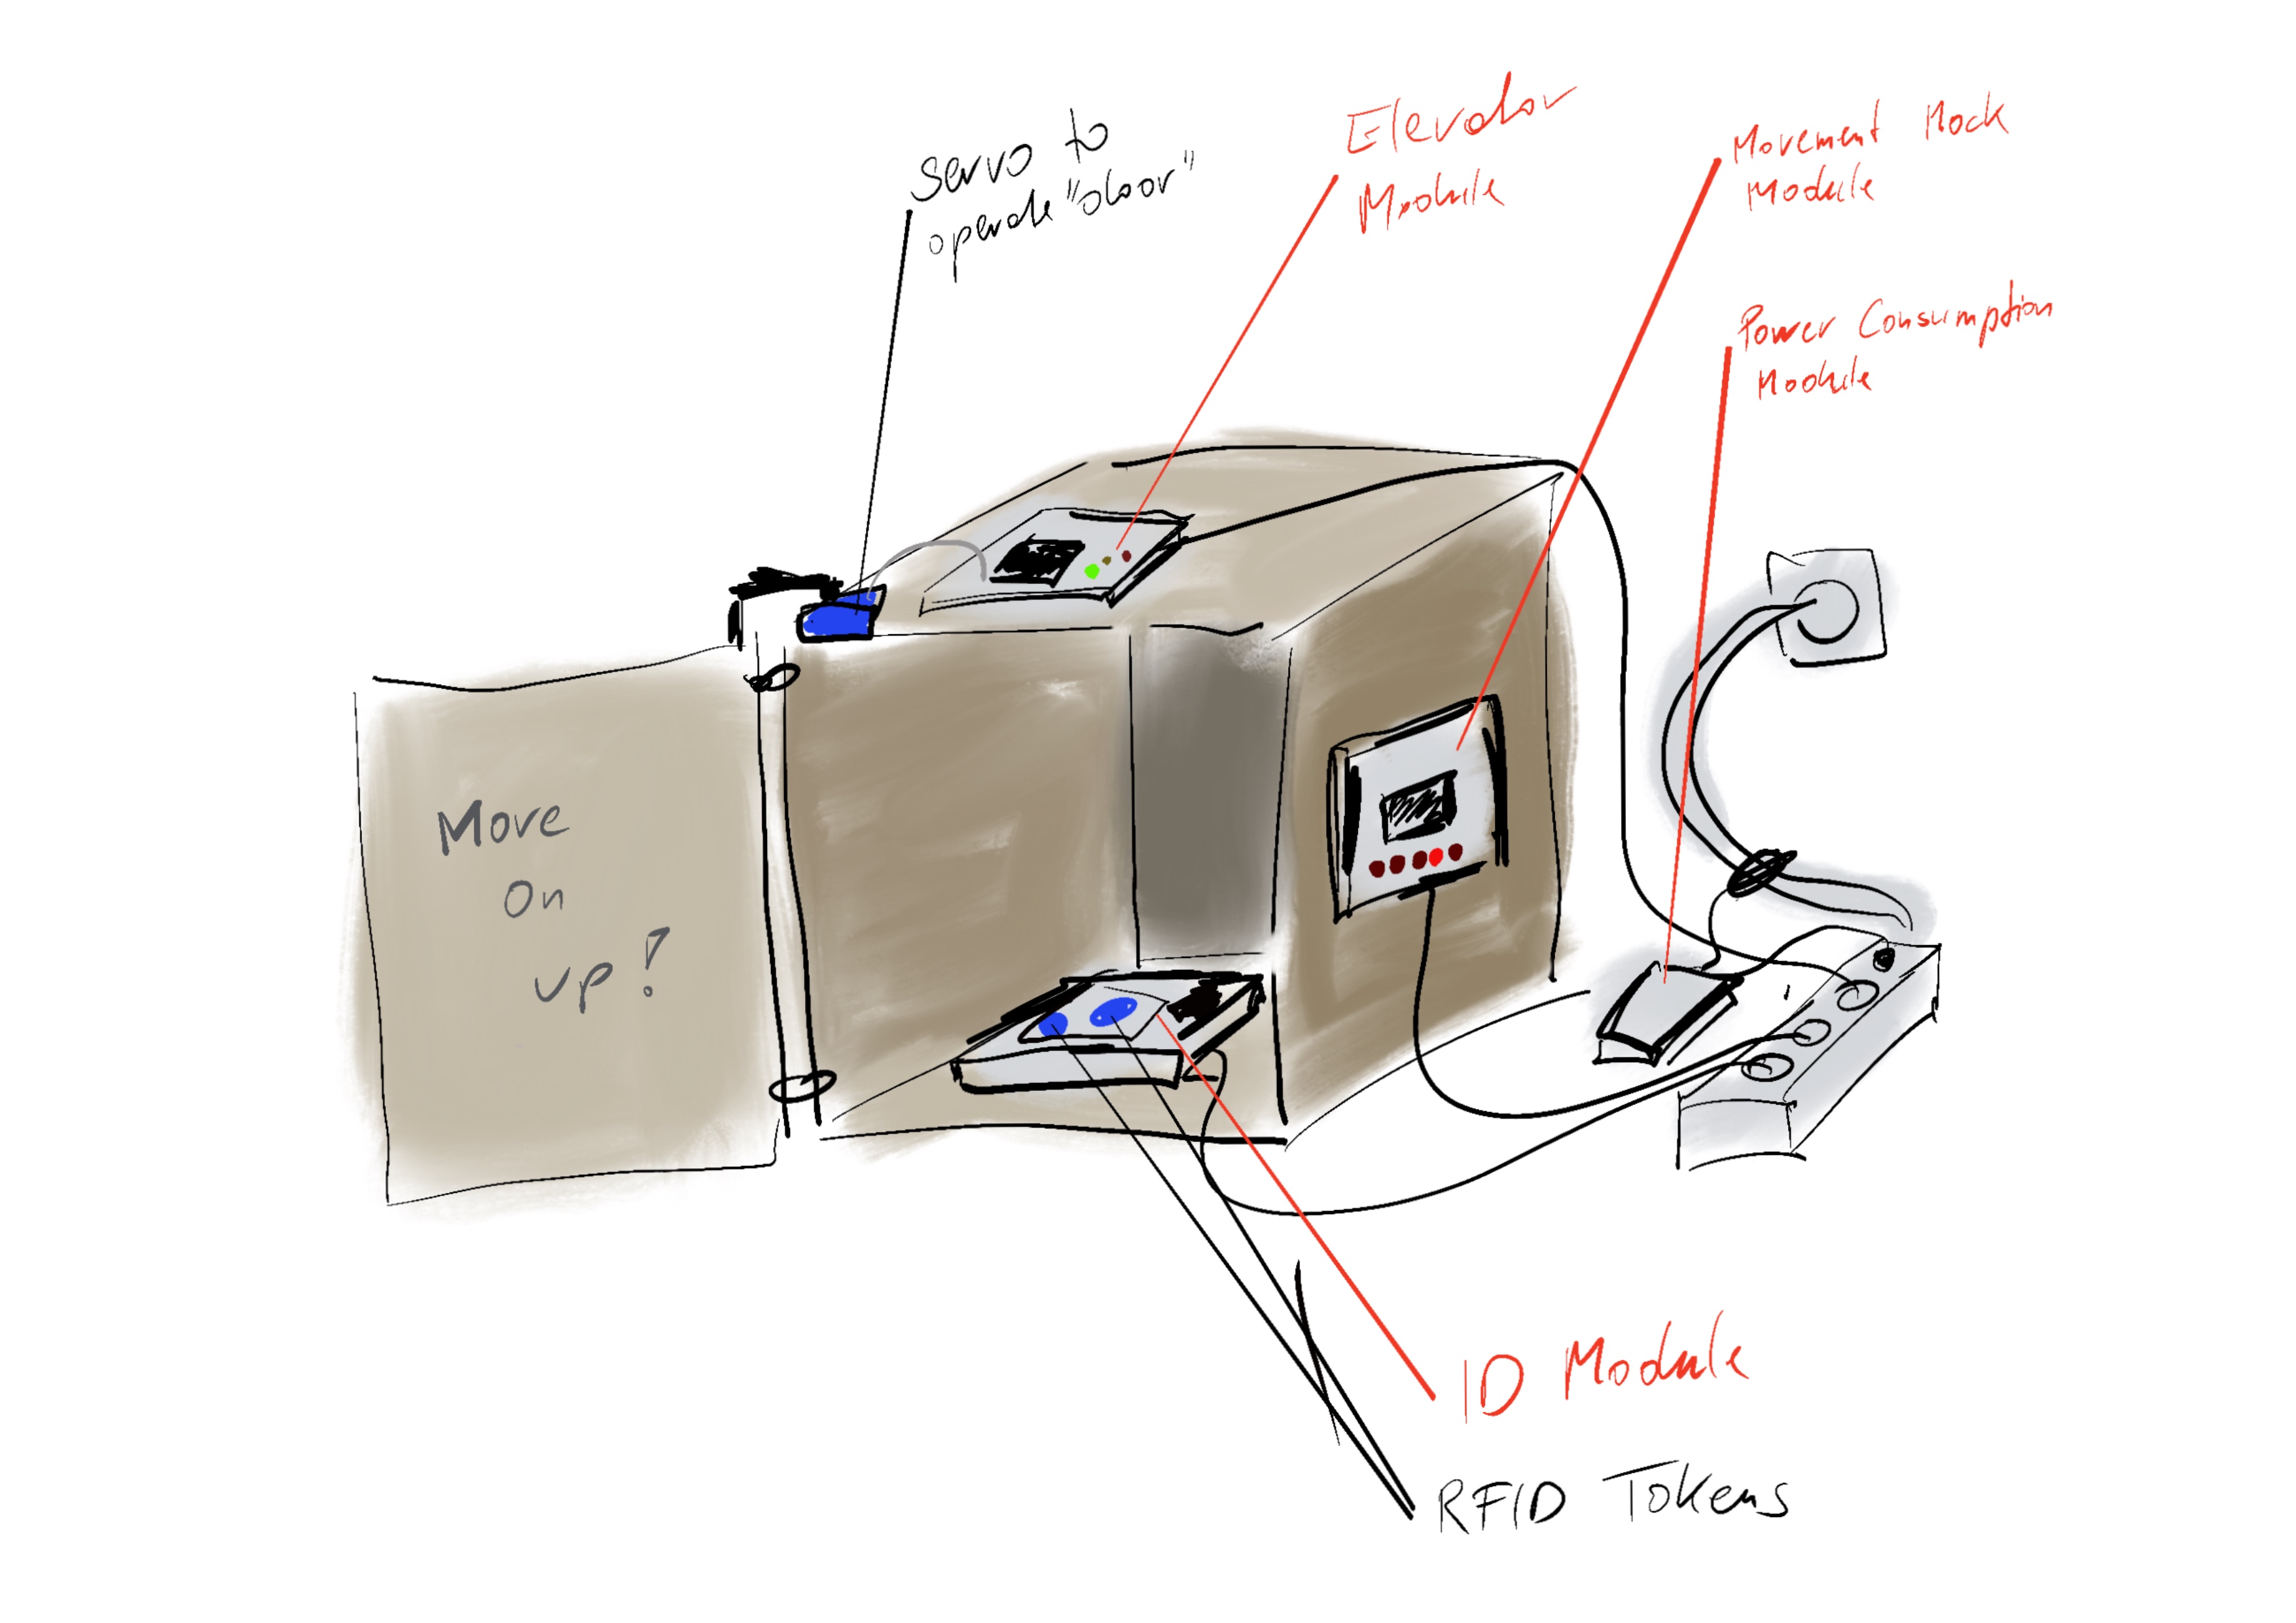 Servo to
operate "door"
Elevator
Module
Movement Mock
Module
Power Consumption
Module
Move
On
up!
ID Module
RFID Tokens